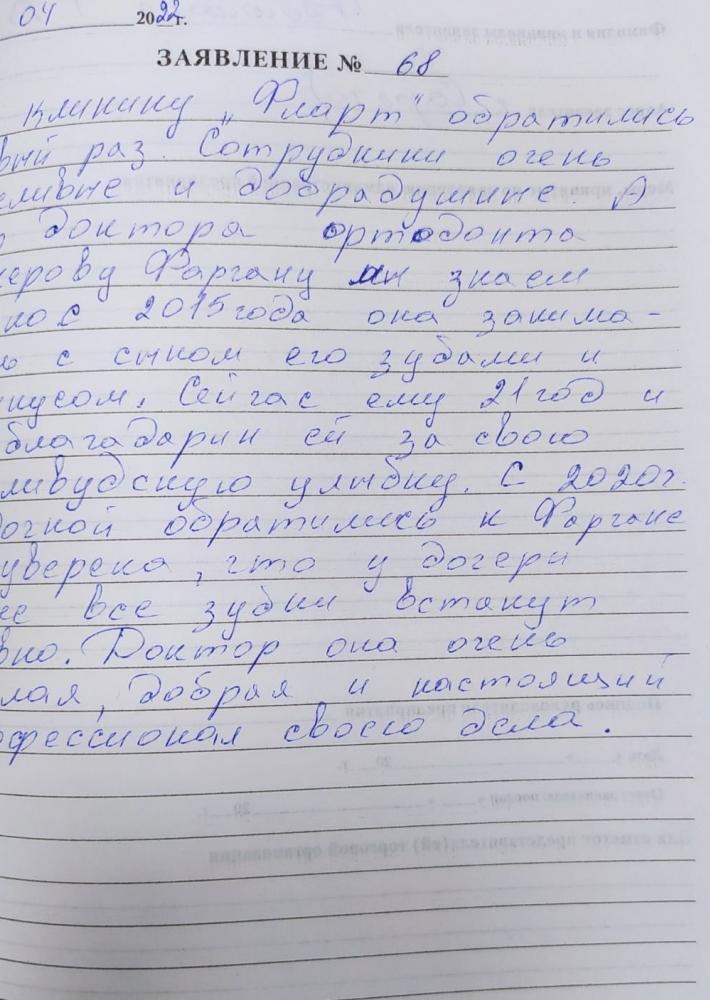 04 2022 г.
ЗАЯВЛЕНИЕ № 68
клинику „Фларт" обратились
вый раз. Сотрудники очень
ливые и добрадушние. А
доктора ортодонта
ерову Фаргану мы знаем
но с 2015 года она занима-
с сыном его зубами и
кусом. Сейчас ему 21 год и
благадарин ей за свою
ливудскую улыбку. С 2020г.
дочкой обратились к Фаргане
уверена, что у дочери
же все зубки встанут
вно. Доктор она очень
лая, добрая и настоящий
офессионал своего дела.